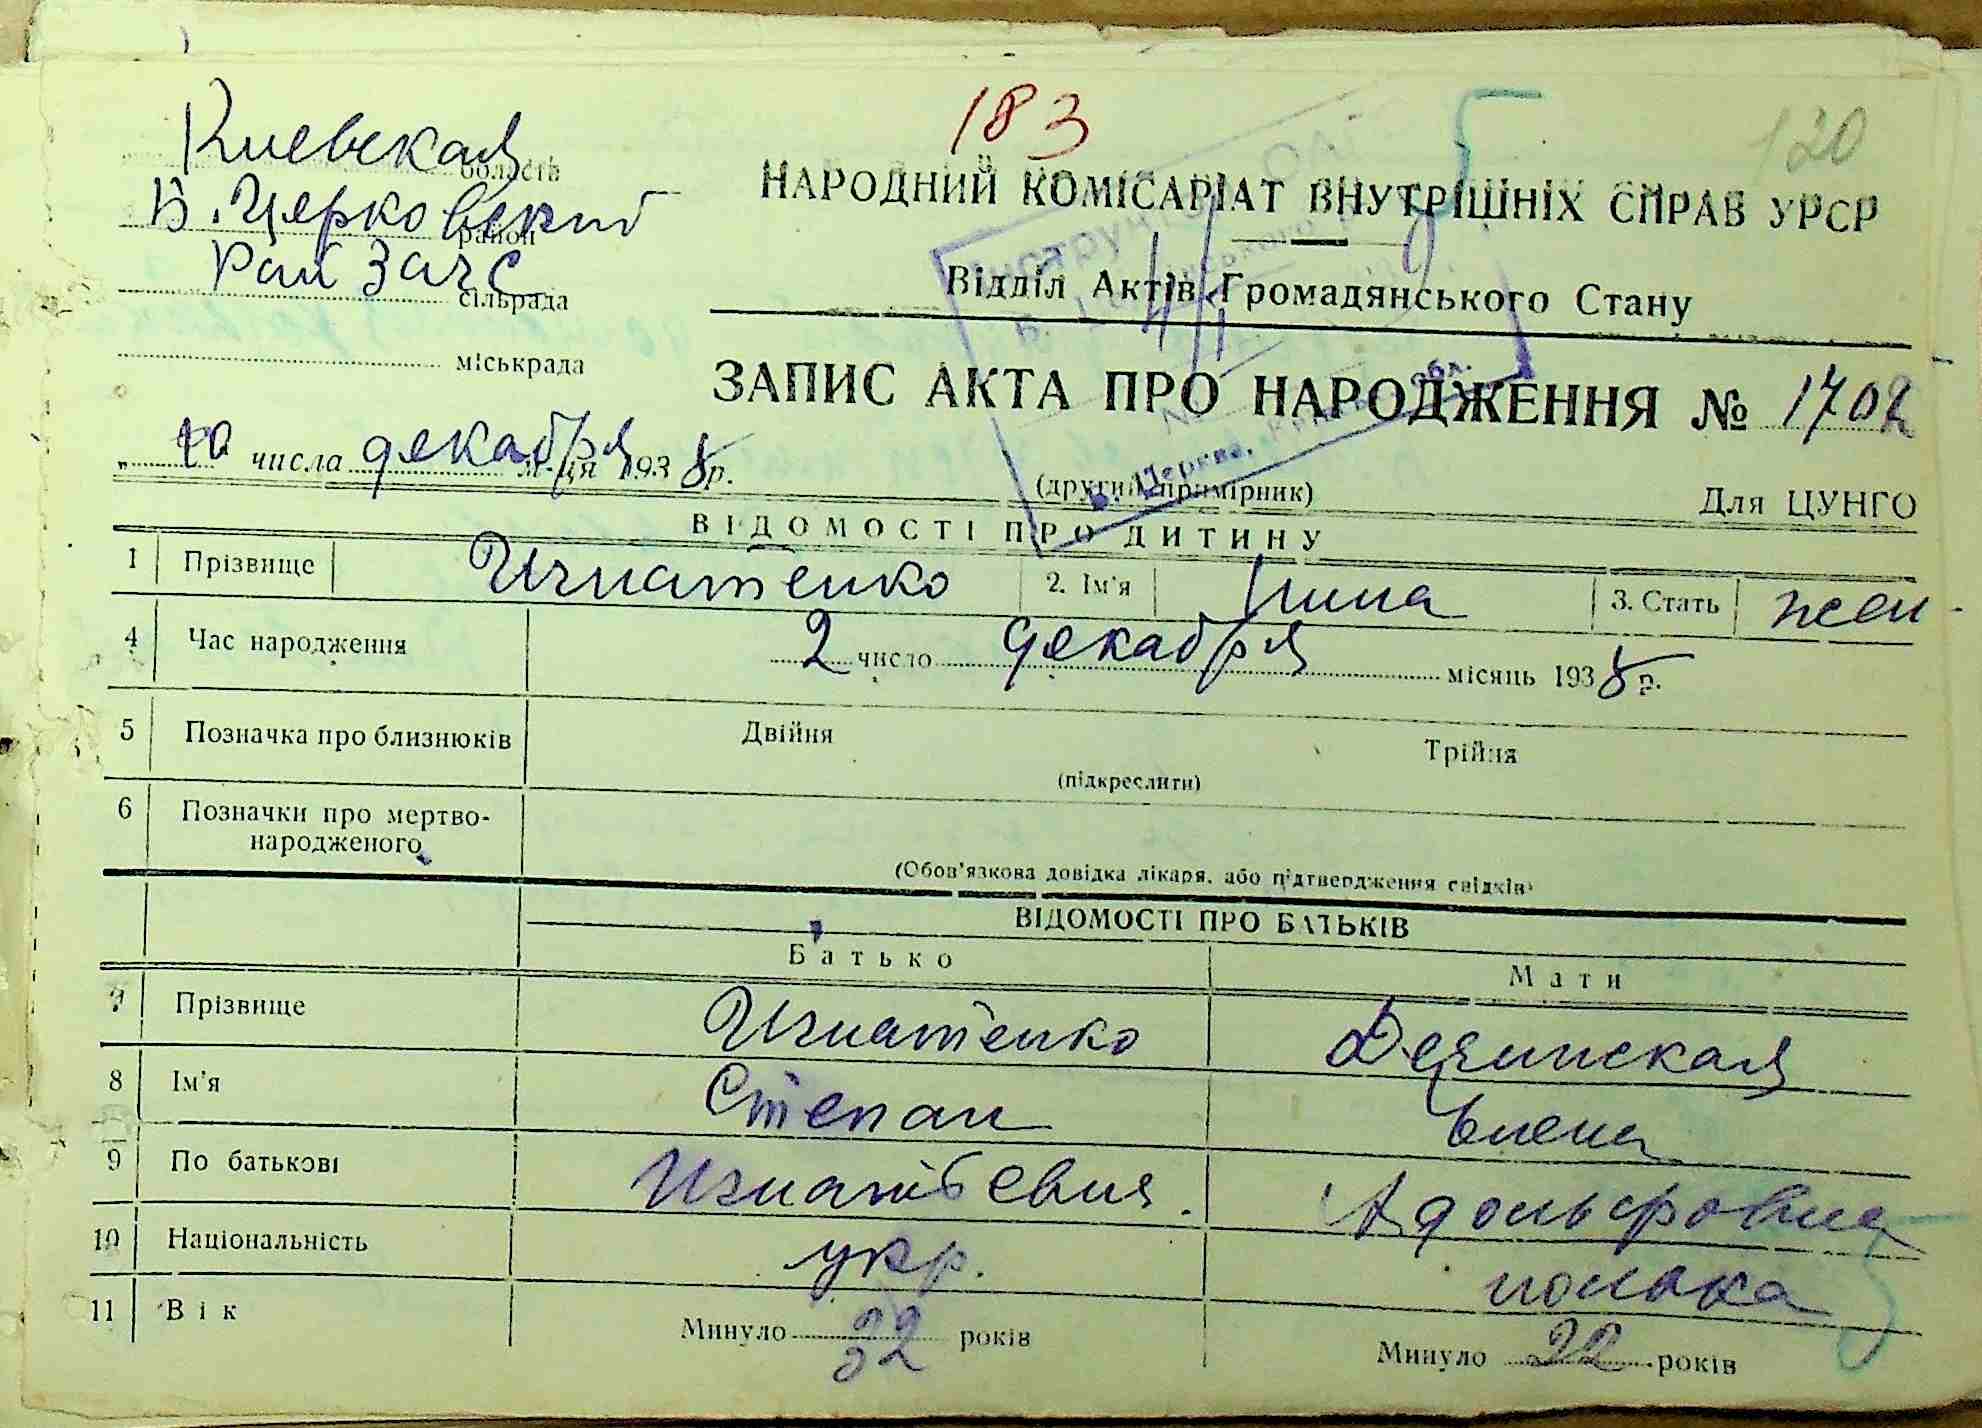 183
120
Киевская область
Б. Церковский район
Рай Загс сільрада
міськрада
НАРОДНИЙ КОМІСАРІАТ ВНУТРІШНІХ СПРАВ УРСР
Відділ Актів Громадянського Стану
ЗАПИС АКТА ПРО НАРОДЖЕННЯ № 1702
"10 числа декабря м-ця 1938 р.
(другий примірник)
Для ЦУНГО
ВІДОМОСТІ ПРО ДИТИНУ
1 Прізвище Игнатенко 2. Ім'я Нина 3. Стать жен
4 Час народження 2 число декабря місяць 1938 р.
5 Позначка про близнюків Двійня Трійня
(підкреслити)
6 Позначки про мертво-
народженого
(Обов'язкова довідка лікаря, або підтвердження свідків)
ВІДОМОСТІ ПРО БАТЬКІВ
Батько Мати
7 Прізвище Игнатенко
8 Ім'я Степан Елена
9 По батькові Игнатьевич Адольфовна
10 Національність укр. полька
11 Вік Минуло 32 років Минуло 22 років